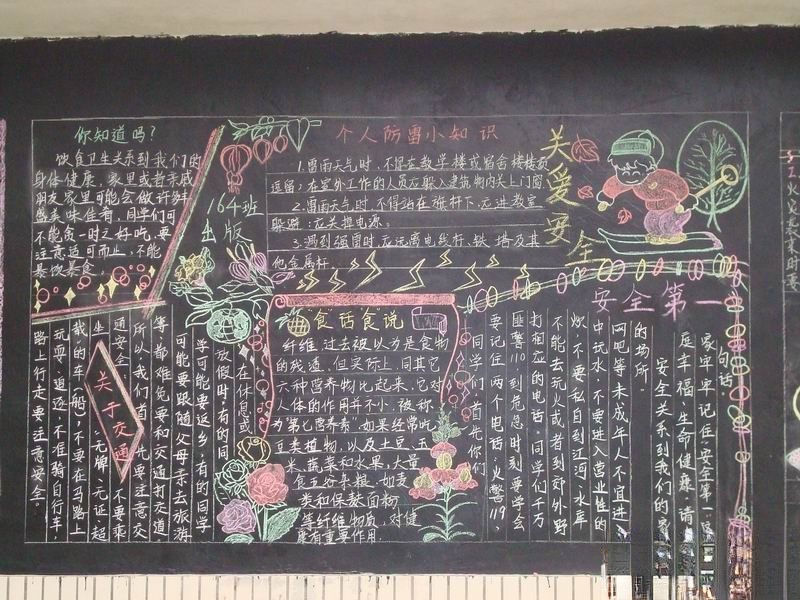 你知道吗?
饮食卫生关系到我们的
身体健康。家里或者亲戚
朋友家里可能会做许多
的美味佳肴,同学们可
不能贪一时之好吃,要
注意适可而止,不能
暴饮暴食。
164班
出版
个人防雷小知识
1.雷雨天气时,不得在教学楼或宿舍楼楼顶
逗留;在室外工作的人员应躲入建筑物内关上门窗
2.雷雨天气时,不得站在旗杆下,应进教室
躲避;应关掉电源。
3.遇到强雷时,应远离电线杆、铁塔及其
他金属杆。
关爱安全
安全第一
句话:
家牢牢记住,安全第一,家
庭幸福,生命健康。请
安全关系到我们的家
的场所。
网吧等未成年人不宜进入
中玩水,不要进入营业性的
炊,不要私自到江河、水库
不能去玩火或者到郊外野
打相应的电话,同学们千万
匪警110到危急时刻要学会
要记住两个电话,火警119、
同学们首先你们
"食"话食"说
纤维,过去被以为是食物
的残渣,但实际上,同其它
六种营养物比起来,它对
人体的作用并不小,被称
为第七营养素,如果经常吃
豆类植物,以及土豆、玉
米、蔬菜和水果,大量
食五谷杂粮,如麦
类和保麸面粉
等纤维物质,对健
康有重要作用。
关于交通
在休息或
放假时,有的同
学可能要返乡,有的同学
可能要跟随父母亲去旅游
等,都难免要和交通打交道
所以我们首先要注意交
通安全,不要乘
坐无牌、无证、超
载的车(船),不要在马路上
玩耍、追逐,不准骑自行车,
路上行走要注意安全。